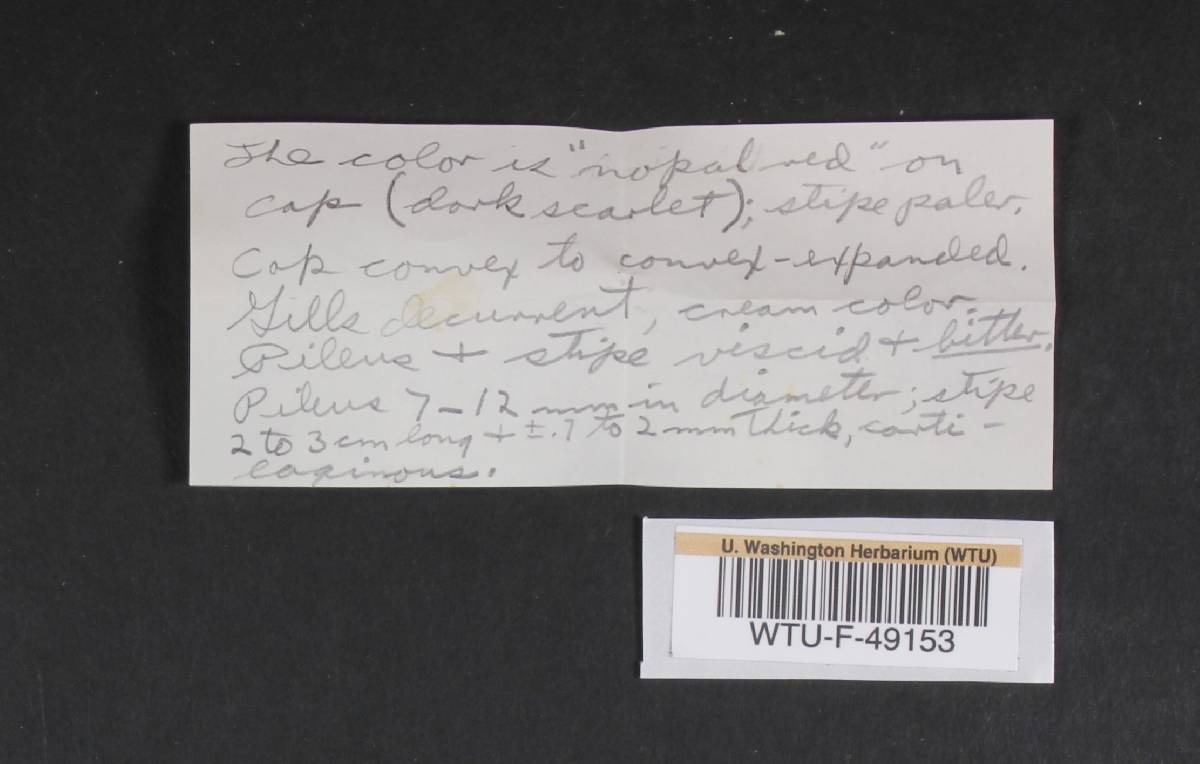 The color is "nopal red" on
cap (dark scarlet); stipe paler.
Cap convex to convex-expanded.
Gills decurrent, cream color.
Pileus + stipe viscid + bitter.
Pileus 7-12 mm in diameter; stipe
2 to 3 cm long + ±.7 to 2 mm thick, carti-
laginous.
U. Washington Herbarium (WTU)
WTU-F-49153